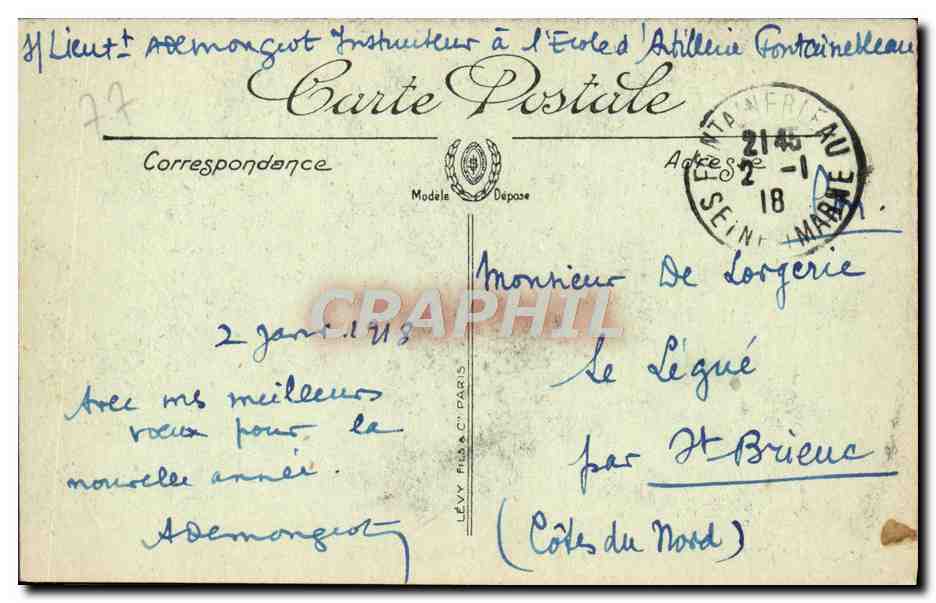 S/Lieut‑t ADemongeot Instructeur à l'Ecole d'Artillerie Fontainebleau
Carte Postale
77
Correspondance
Adresse
Modèle Déposé
FONTAINEBLEAU
21 45
2 -1
18
SEINE MARNE
CRAPHIL
Monsieur De Lorgerie
Le Légué
par St Brieuc
(Côtes du Nord)
2 Janv. 1918
Avec mes meilleurs
vœux pour la
nouvelle année.
ADemongeot
LÉVY FILS & Cie PARIS